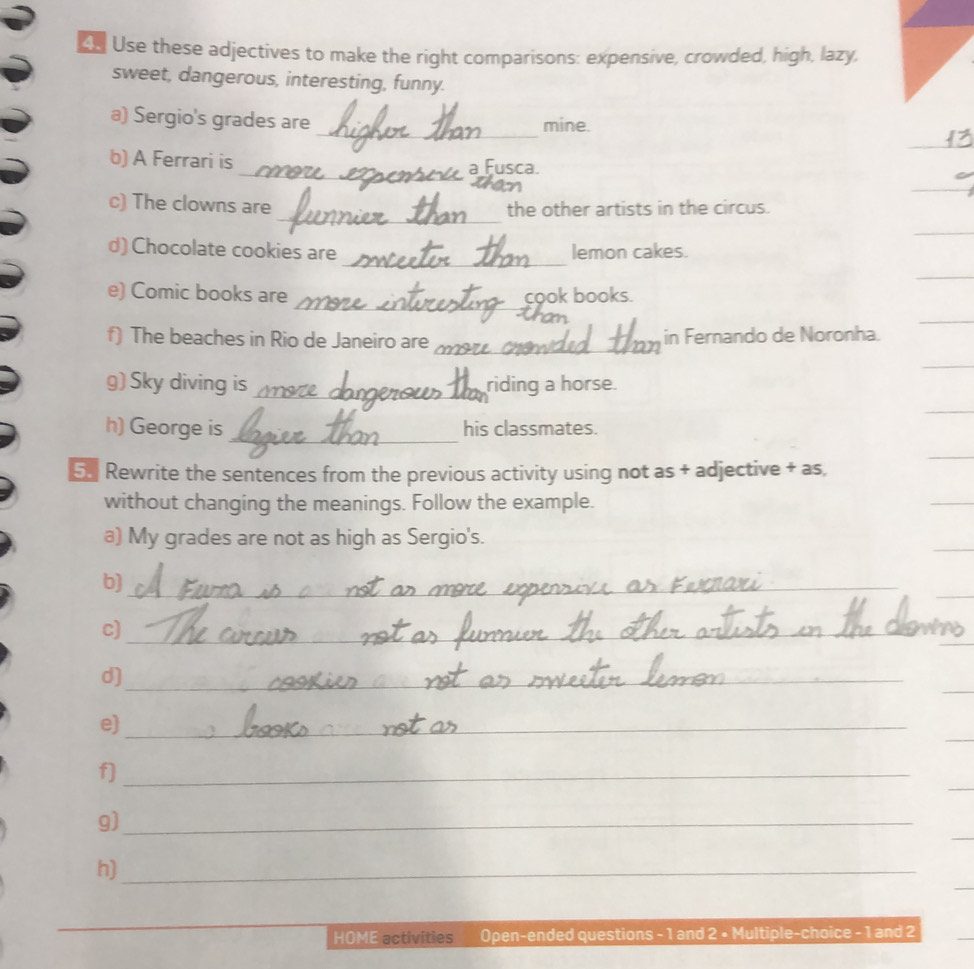 4. Use these adjectives to make the right comparisons: expensive, crowded, high, lazy,
sweet, dangerous, interesting, funny.
a) Sergio's grades are higher than mine.
b) A Ferrari is more expensive than a Fusca.
c) The clowns are funnier than the other artists in the circus.
d) Chocolate cookies are sweeter than lemon cakes.
e) Comic books are more interesting than cook books.
f) The beaches in Rio de Janeiro are more crowded than in Fernando de Noronha.
g) Sky diving is more dangerous than riding a horse.
h) George is lazier than his classmates.
5. Rewrite the sentences from the previous activity using not as + adjective + as,
without changing the meanings. Follow the example.
a) My grades are not as high as Sergio's.
b) A is a not as more expensive as Ferrari
c) The circus not as funnier the other artists in the clowns
d) cookies not as sweeter lemon
e) books not as
f)
g)
h)
HOME activities Open-ended questions - 1 and 2 • Multiple-choice - 1 and 2
13